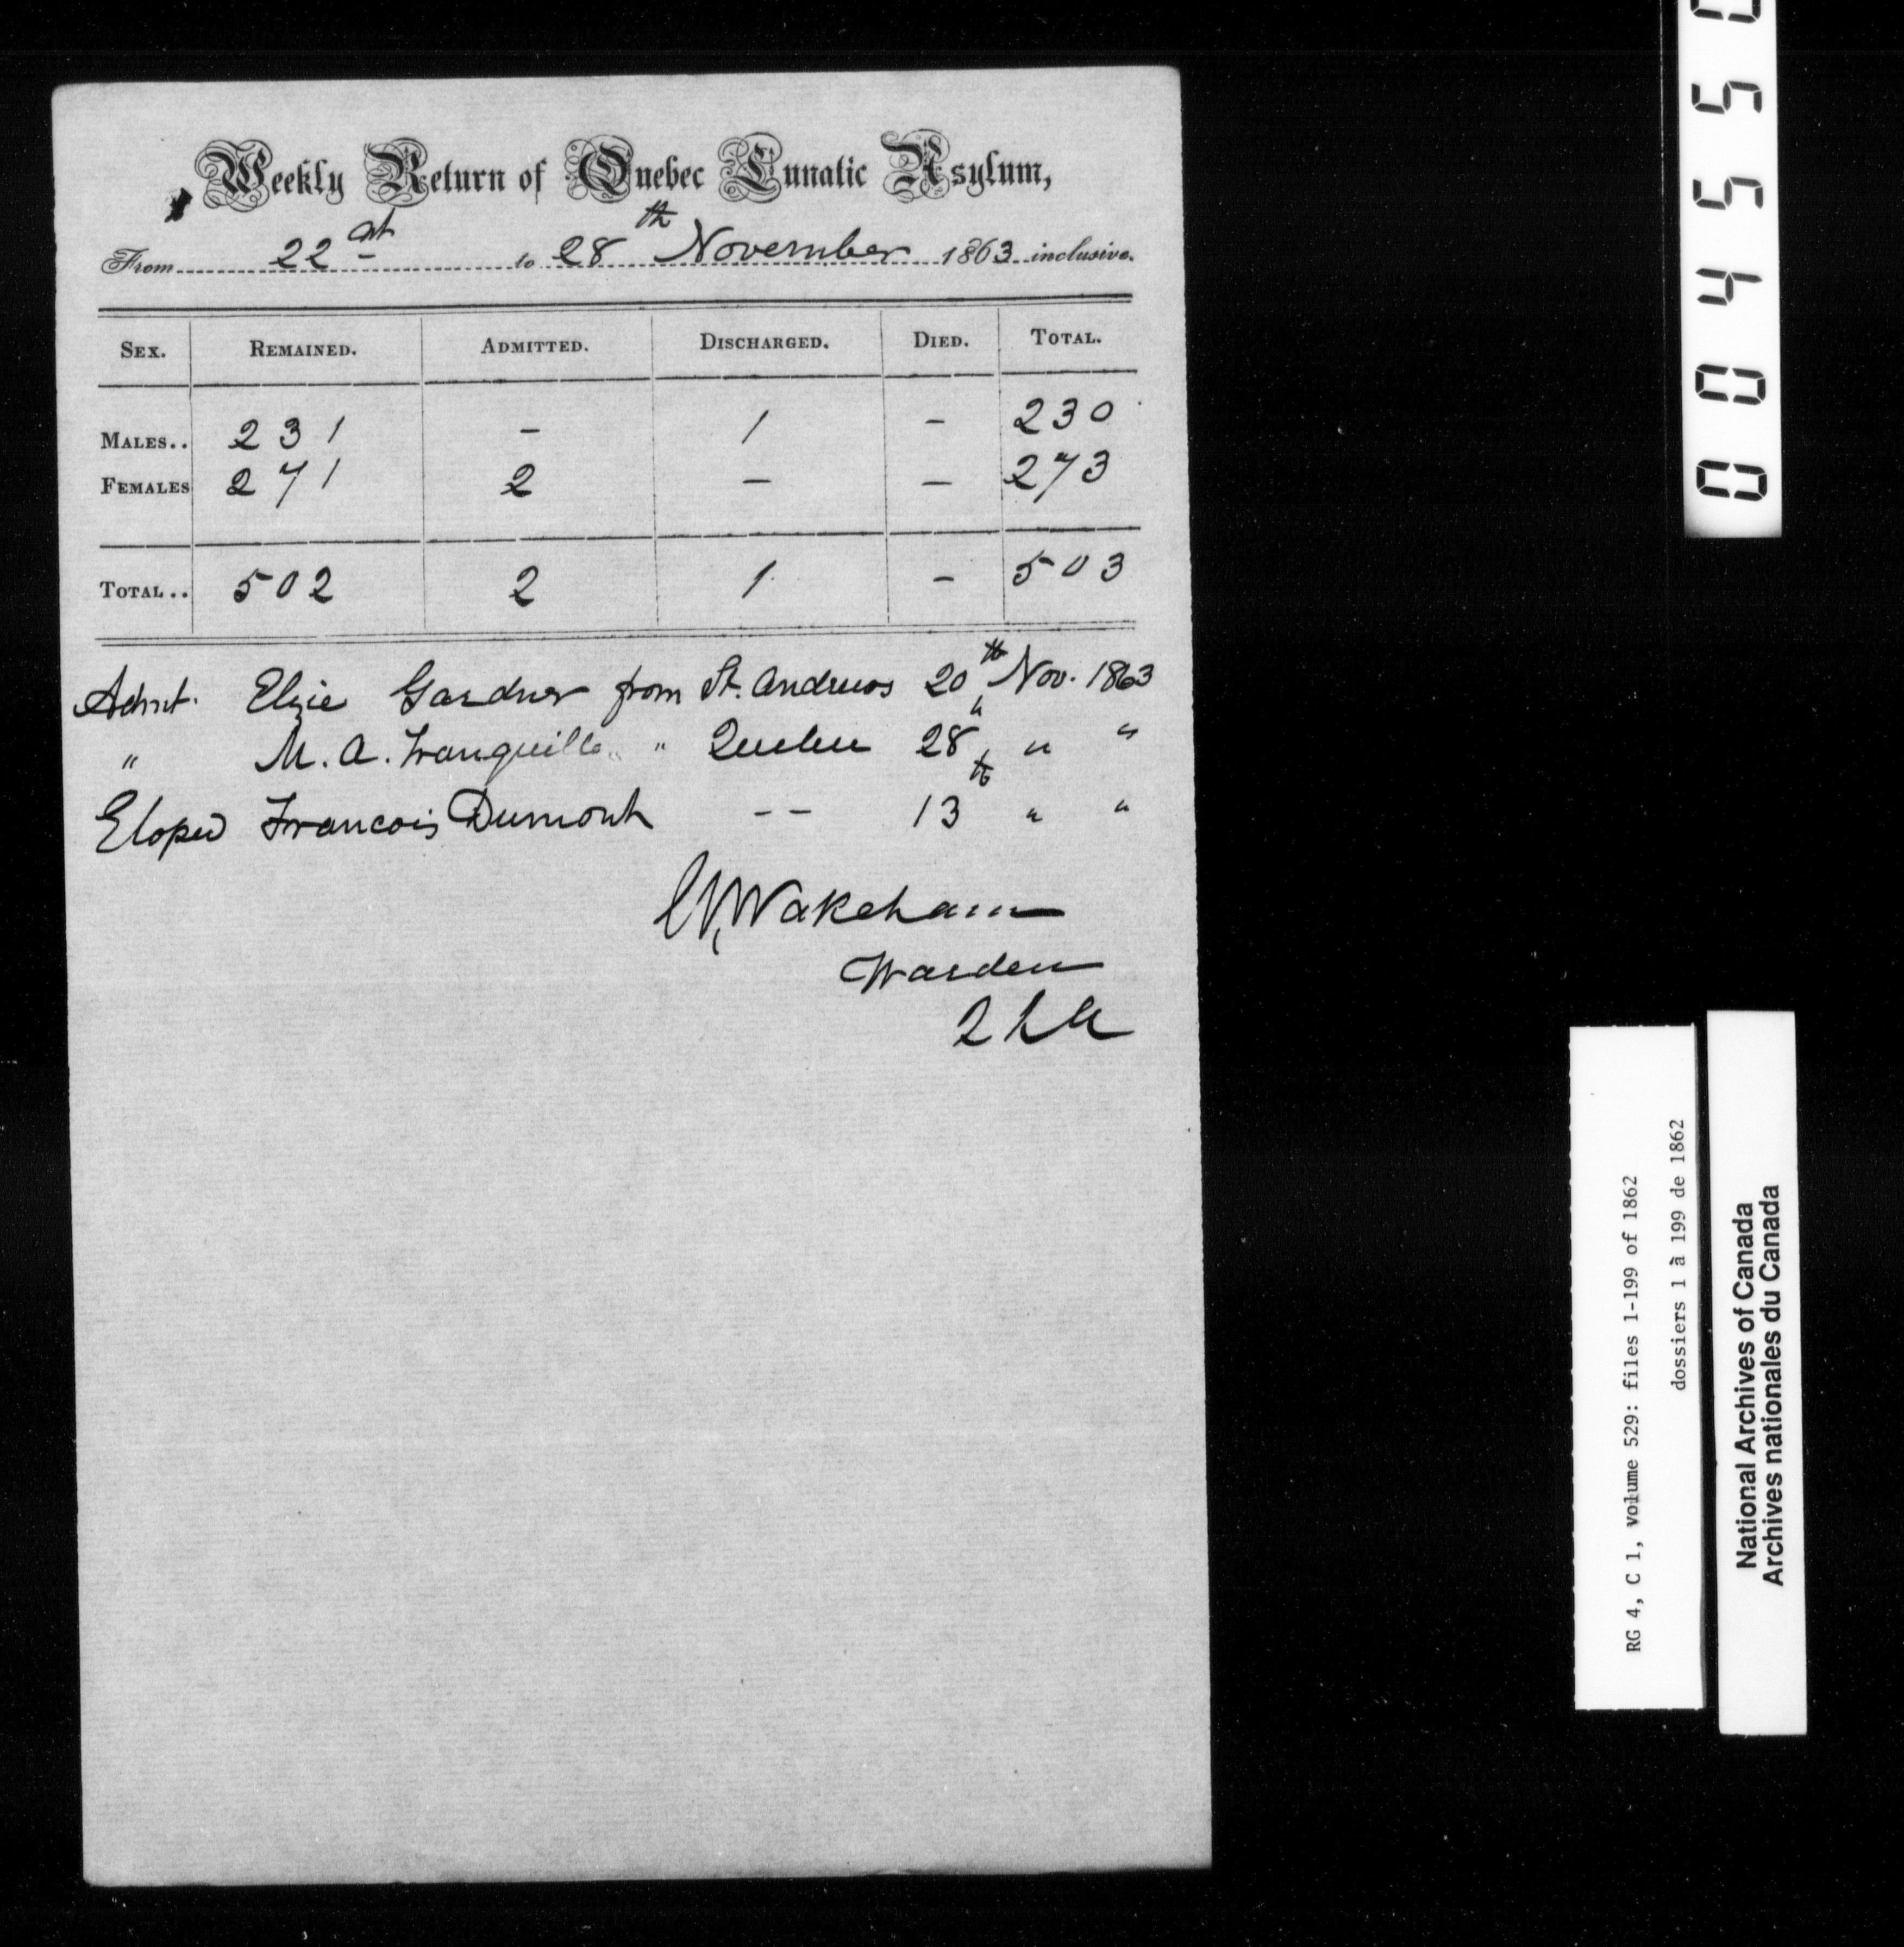 Weekly Return of Quebec Lunatic Asylum,
From 22st to 28th November 1863 inclusive.
SEX. REMAINED. ADMITTED. DISCHARGED. DIED. TOTAL.
MALES.. 231 - 1 - 230
FEMALES 271 2 - - 273
TOTAL.. 502 2 1 - 503
Admt. Elzie Gardner from St. Andrews 20th Nov. 1863
" M. A. Tranquille " Quebec 28 " " "
Eloped Francois Dumont -- 13th " "
Wakeham
Warden
Q L A
0 0 4 5 5
RG 4, C 1, volume 529: files 1-199 of 1862
dossiers 1 à 199 de 1862
National Archives of Canada
Archives nationales du Canada